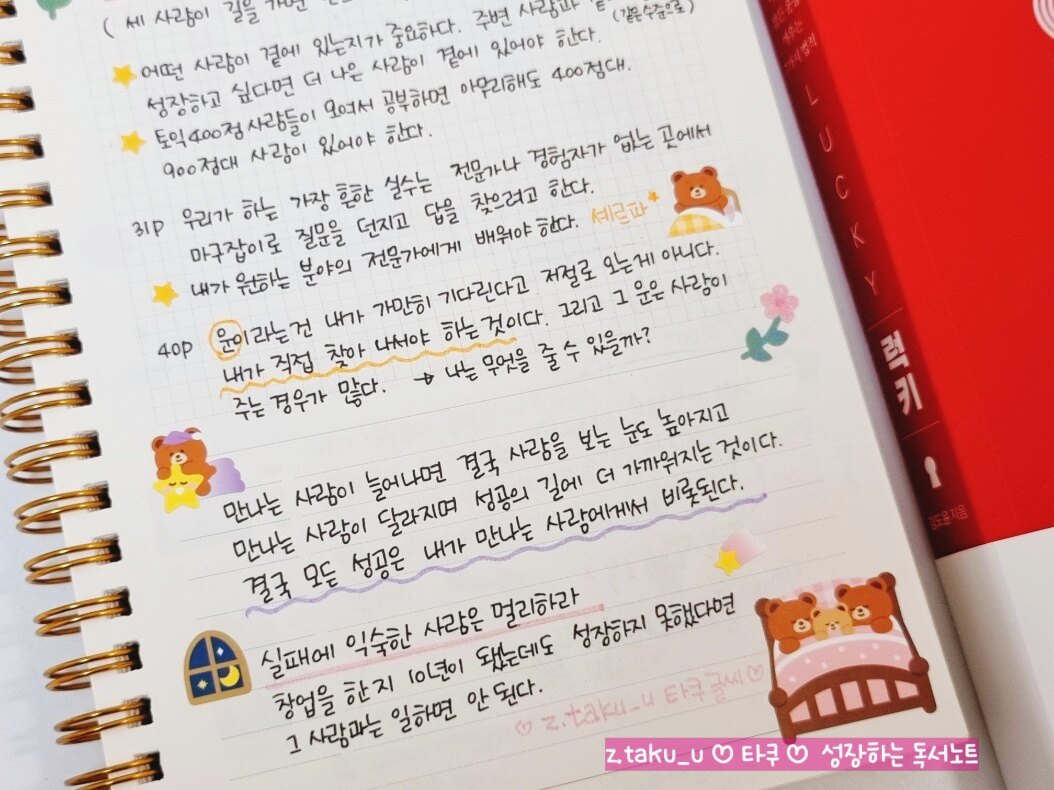 ( 세 사람이 길을 가면
★ 어떤 사람이 곁에 있는지가 중요하다. 주변 사람과
(같은 수준으로)
성장하고 싶다면 더 나은 사람이 곁에 있어야 한다.
★ 토익 400점 사람들이 모여서 공부하면 아무리해도 400점대.
900점대 사람이 있어야 한다.
31P 우리가 하는 가장 흔한 실수는 전문가나 경험자가 없는 곳에서
마구잡이로 질문을 던지고 답을 찾으려고 한다.
★ 내가 원하는 분야의 전문가에게 배워야 한다. 셰르파
40P 운이라는건 내가 가만히 기다린다고 저절로 오는게 아니다.
내가 직접 찾아 나서야 하는 것이다. 그리고 그 운은 사람이
주는 경우가 많다. → 나는 무엇을 줄 수 있을까?
만나는 사람이 늘어나면 결국 사람을 보는 눈도 높아지고
만나는 사람이 달라지며 성공의 길에 더 가까워지는 것이다.
결국 모든 성공은 내가 만나는 사람에게서 비롯된다.
실패에 익숙한 사람은 멀리하라
창업을 한지 10년이 됐는데도 성장하지 못했다면
그 사람과는 일하면 안 된다.
♡ z.taku_u 타쿠글씨 ♡
LUCKY
럭키
김도윤 지음
z.taku_u ♡ 타쿠 ♡ 성장하는 독서노트